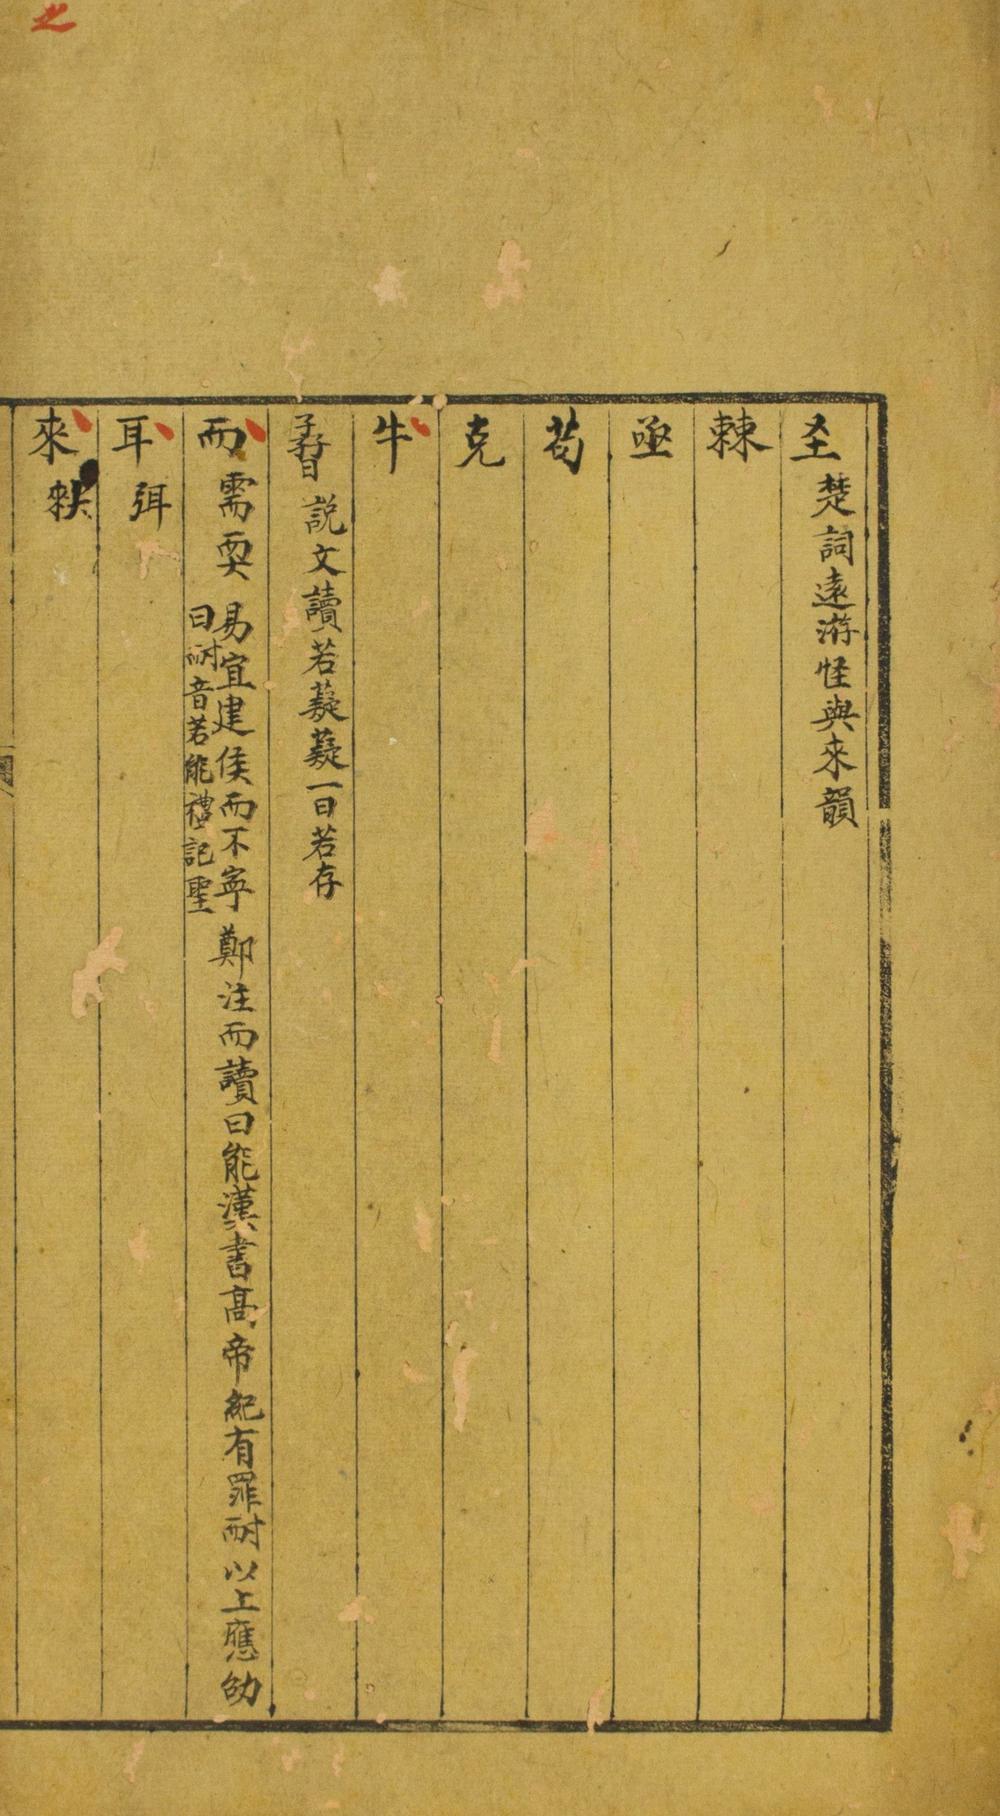 之
圣 楚詞遠游怪與來韻
棘
亟
茍
克
牛
孴 說文讀若薿薿一曰若存
而 需耎 易宜建侯而不寧鄭注而讀曰能漢書高帝紀有罪耐以上應劭
曰耐音若能禮記聖
耳 弭
來 𣐩